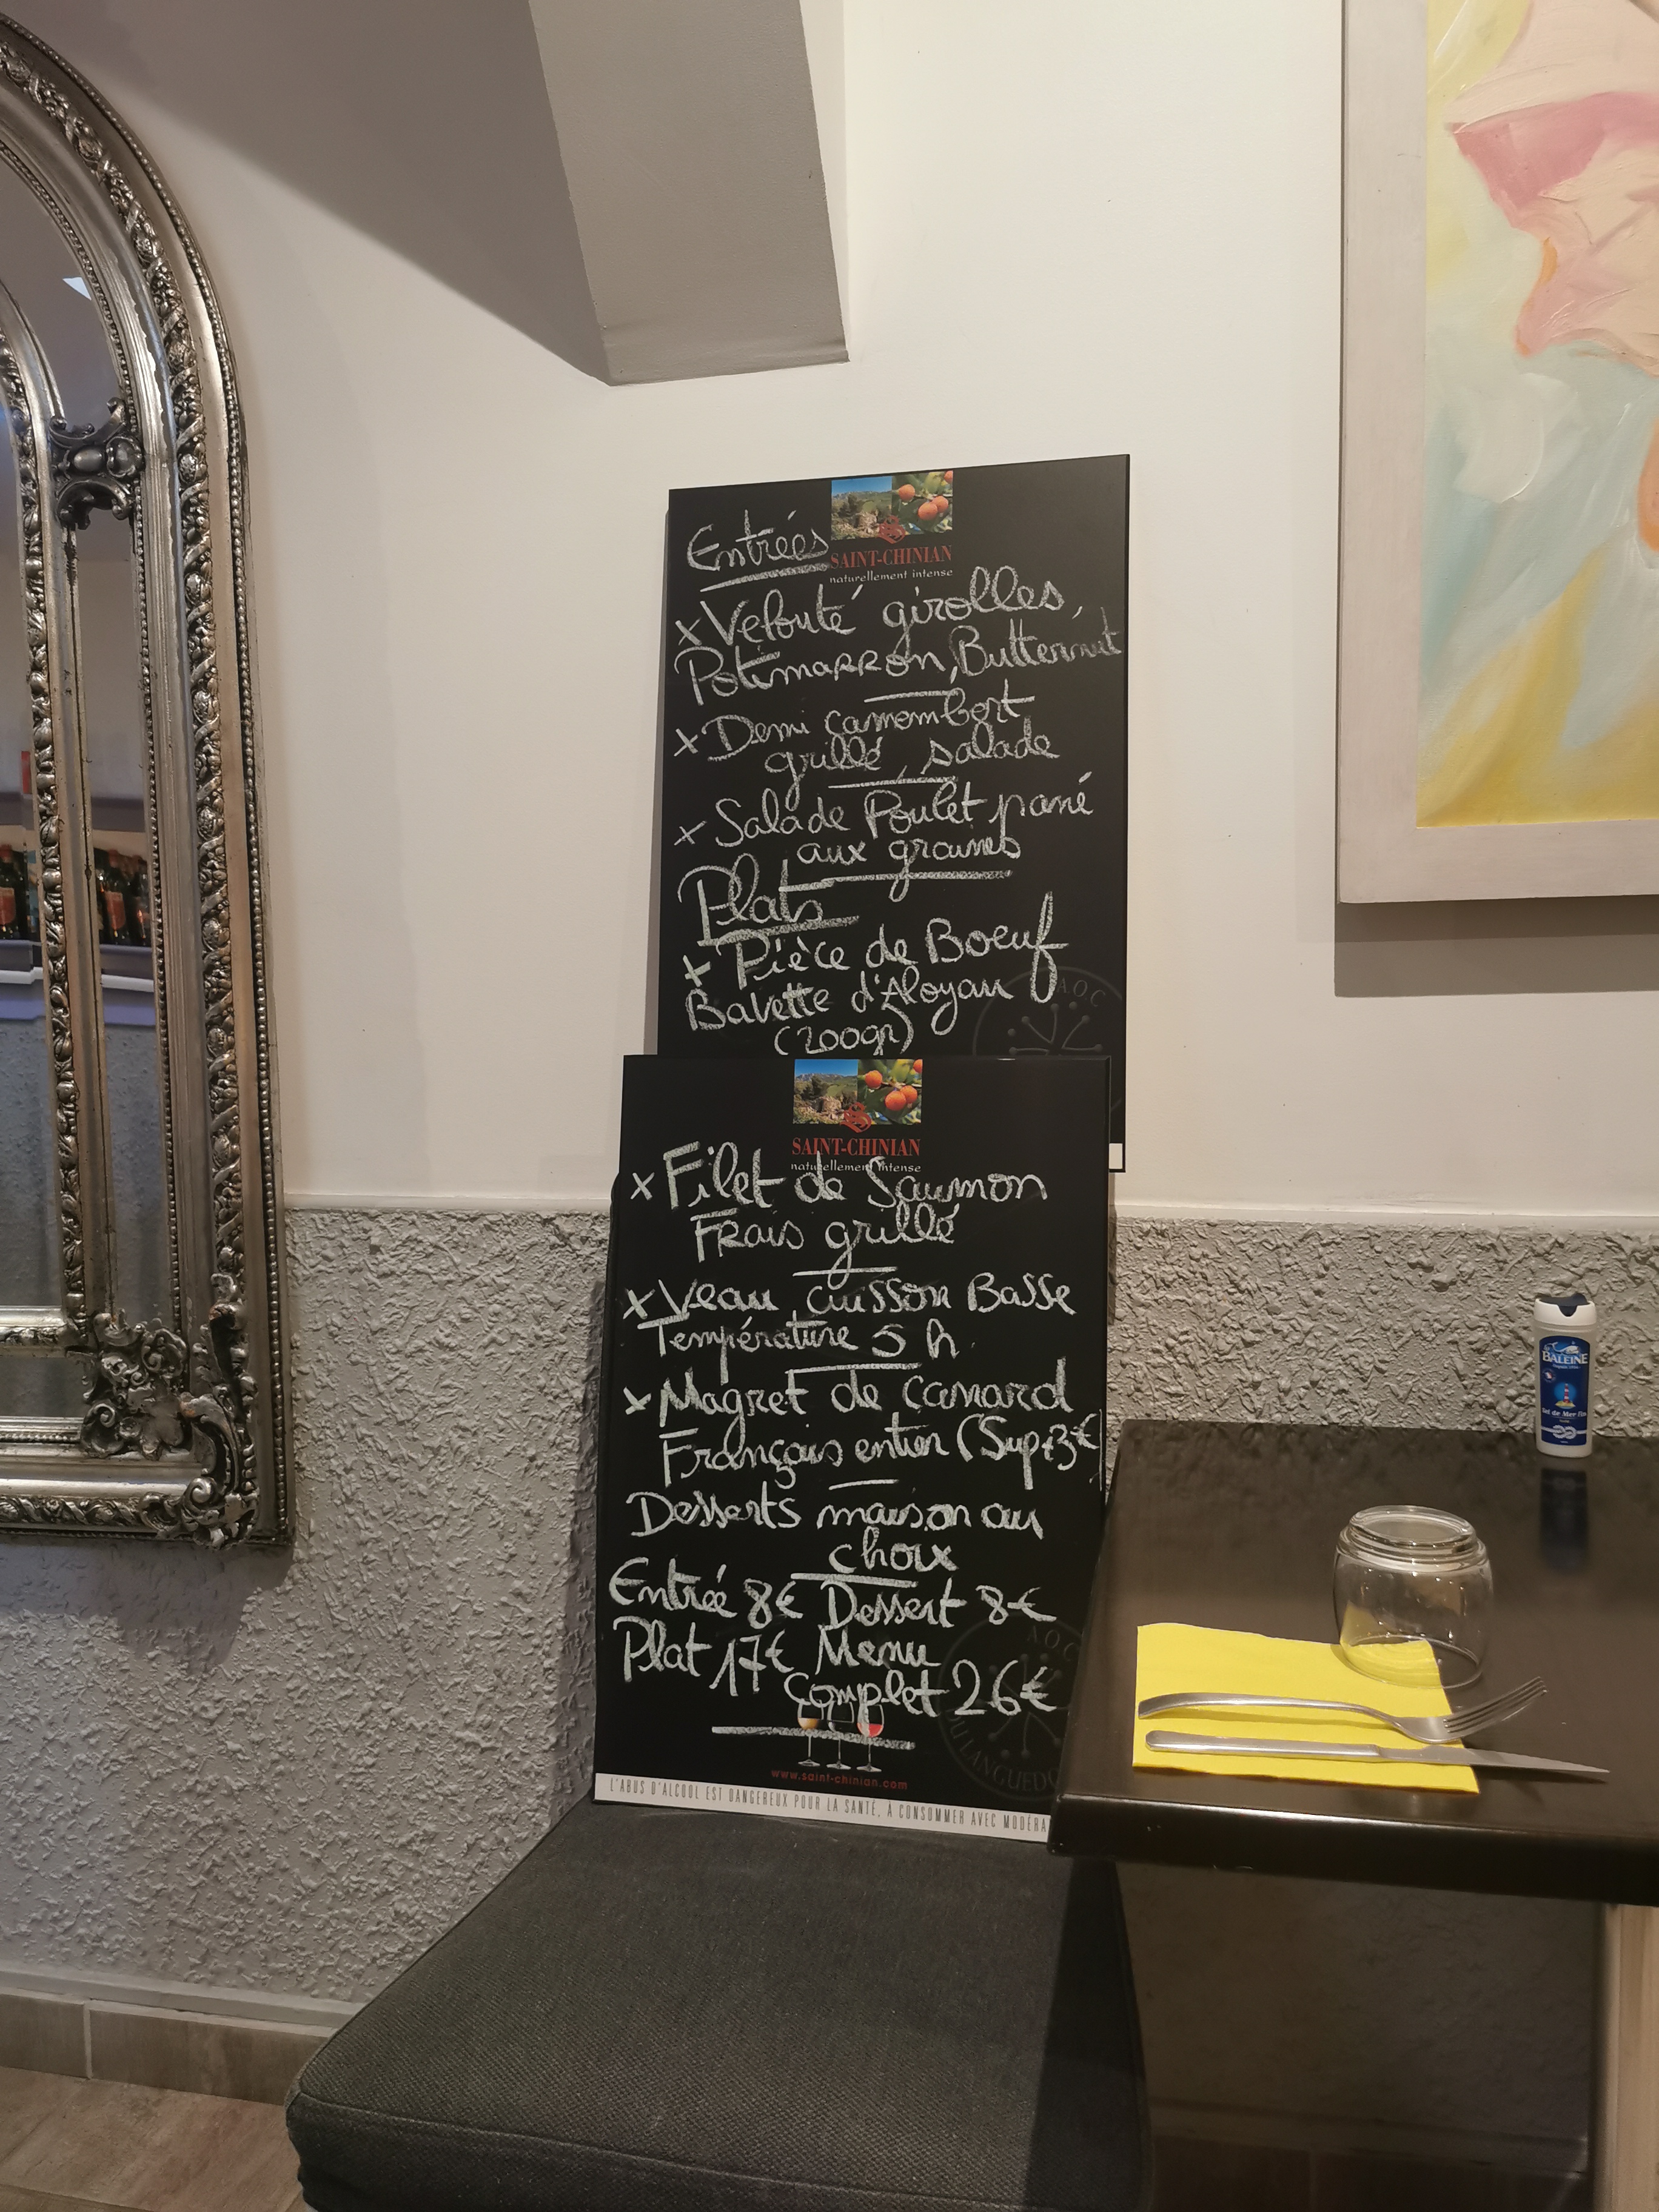 Entrées
SAINT-CHINIAN
naturellement intense
x Velouté girolles,
Potimarron, Butternut
x Demi camembert
grillé, salade
x Salade Poulet pané
aux graines
Plats
x Pièce de Boeuf
Bavette d'Aloyau
(200gr)
AOC
SAINT-CHINIAN
naturellement intense
x Filet de Saumon
Frais grillé
x Veau, cuisson Basse
Température 5 h.
x Magret de canard
Français entier (Sup+3€)
Desserts maison au
choix
Entrée 8€ Dessert 8€
Plat 17€ Menu
Complet 26€
AOC
DU LANGUEDO
www.saint-chinian.com
L'ABUS D'ALCOOL EST DANGEREUX POUR LA SANTÉ, À CONSOMMER AVEC MODÉRA
BALEINE
Sel de Mer fin